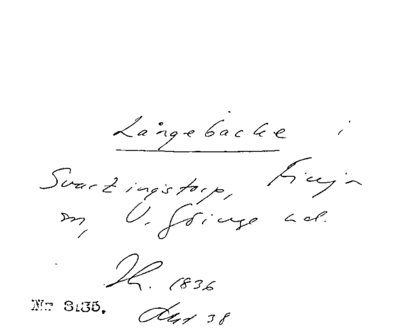 Långebacke i
Svartingstorp, Finja
sn, V. Göinge hd.
Th. 1836
38
Nr 8135.